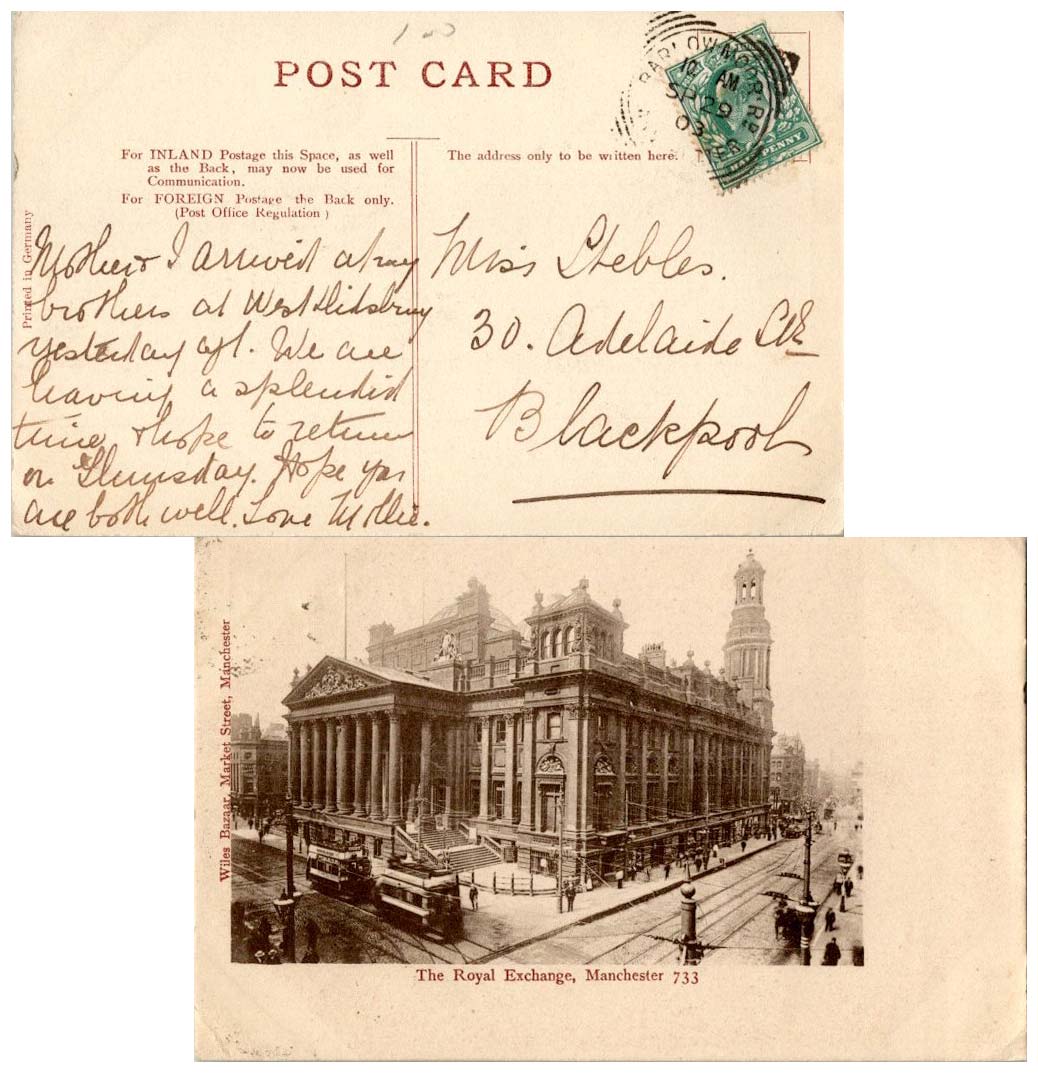 1 - 0
POST CARD
BARLOW MOOR RD
10 AM
SP 29
03
HALFPENNY
For INLAND Postage this Space, as well
as the Back, may now be used for
Communication.
For FOREIGN Postage the Back only.
(Post Office Regulation)
The address only to be written here.
Printed in Germany
Mother & I arrived at my
brothers at West Didsbury
yesterday aft. We are
having a splendid
time & hope to return
on Thursday. Hope you
are both well. Love Mollie.
Miss Stebles.
30. Adelaide St
Blackpool
Wiles Bazaar, Market Street, Manchester
The Royal Exchange, Manchester 733